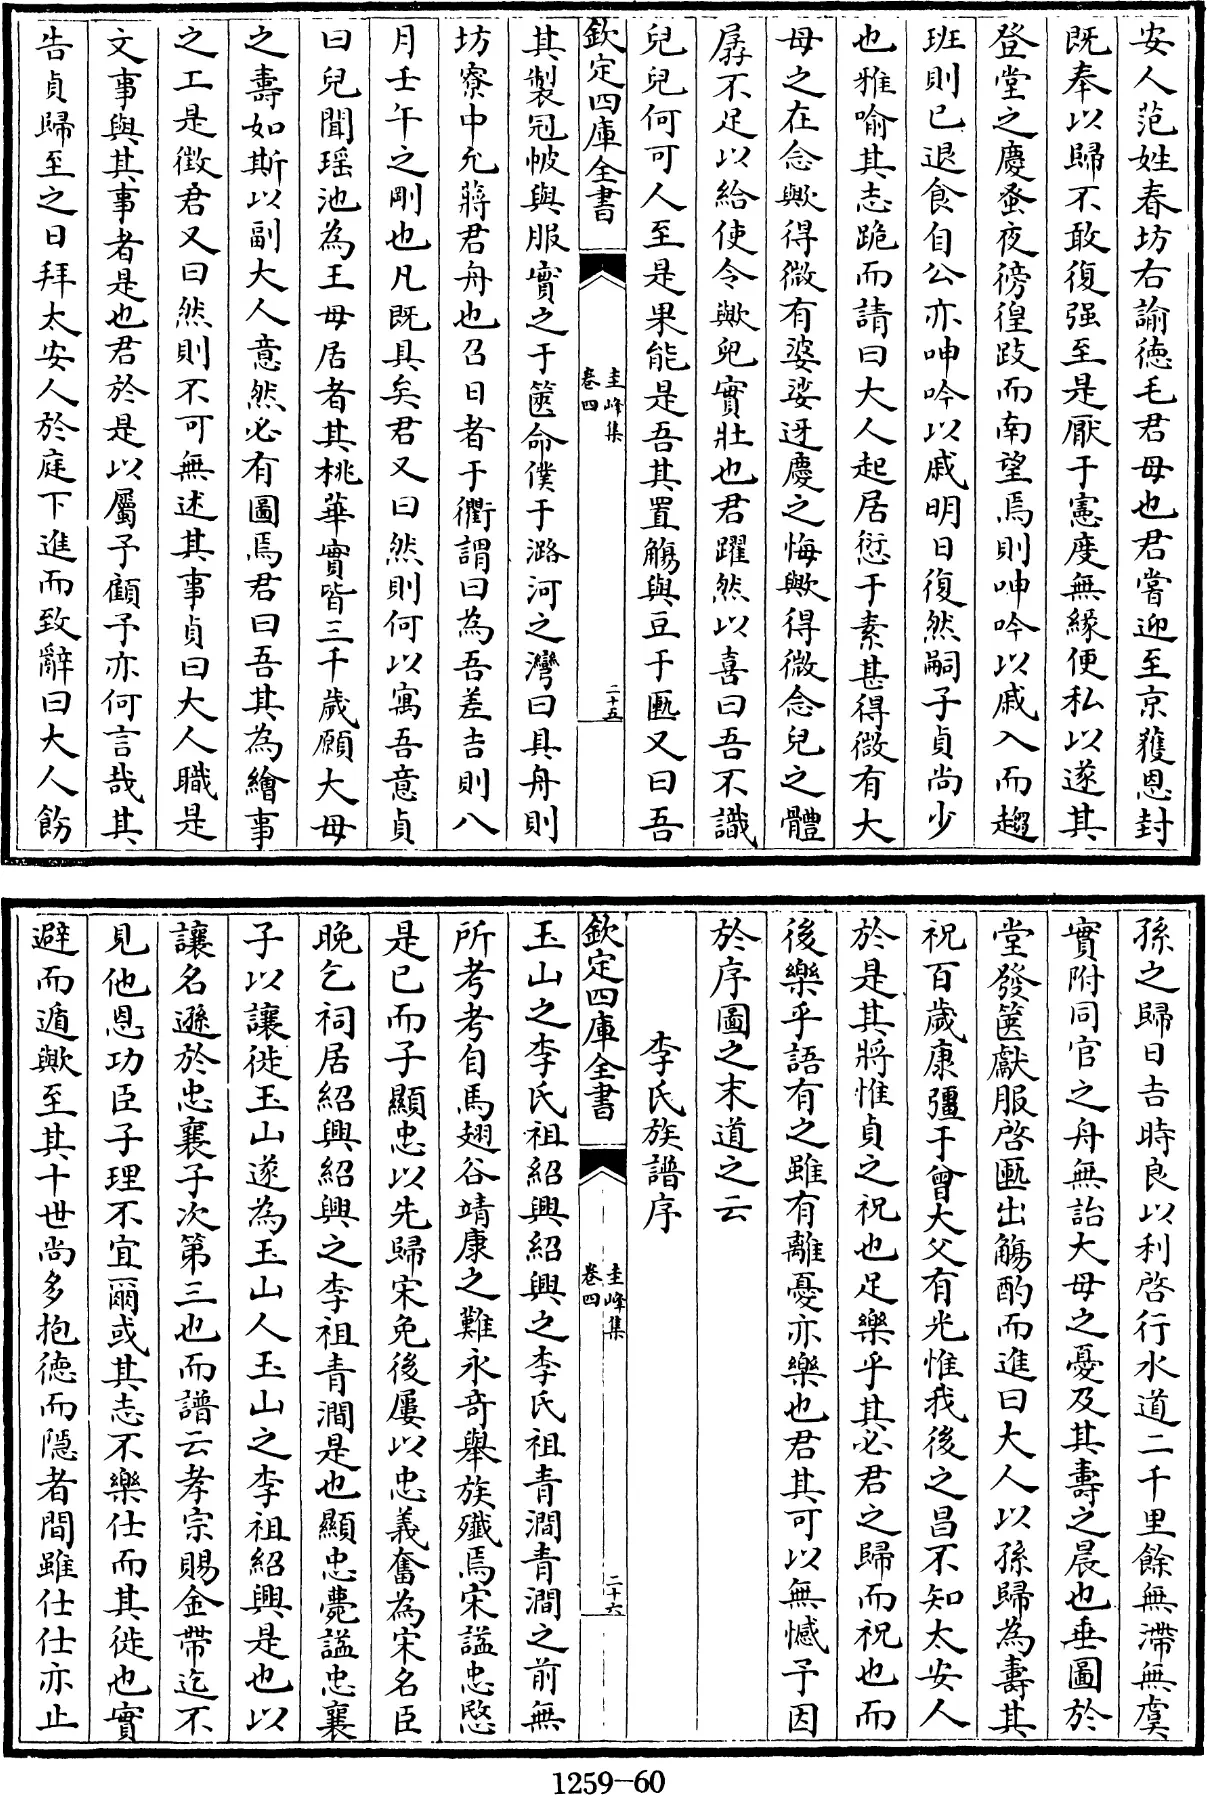 安人范姓春坊右諭徳毛君母也君嘗迎至京獲恩封
既奉以歸不敢復强至是厭于憲度無緣便私以遂其
登堂之慶蚤夜徬徨跂而南望焉則呻吟以戚入而趨
班則已退食自公亦呻吟以戚明日復然嗣子貞尚少
也雅喻其志跪而請曰大人起居愆于素甚得微有大
母之在念歟得微有婆娑迓慶之悔歟得微念兒之體
孱不足以給使令歟兒實壯也君躍然以喜曰吾不識
兒兒何可人至是果能是吾其置觴與豆于匭又曰吾
欽定四庫全書
圭峰集
卷四
二十五
其製冠帔與服實之于篋命僕于潞河之灣曰具舟則
坊寮中允蔣君舟也召日者于衢謂曰為吾差吉則八
月壬午之剛也凡既具矣君又曰然則何以寓吾意貞
曰兒聞瑶池為王母居者其桃華實皆三千歳願大母
之壽如斯以副大人意然必有圖焉君曰吾其為繪事
之工是徴君又曰然則不可無述其事貞曰大人職是
文事與其事者是也君於是以屬予顧予亦何言哉其
告貞歸至之日拜太安人於庭下進而致辭曰大人飭
孫之歸日吉時良以利啓行水道二千里餘無滯無虞
實附同官之舟無詒大母之憂及其壽之晨也垂圖於
堂發篋獻服啓匭出觴酌而進曰大人以孫歸為壽其
祝百歲康彊于曾大父有光惟我後之昌不知太安人
於是其將惟貞之祝也足樂乎其必君之歸而祝也而
後樂乎語有之雖有離憂亦樂也君其可以無憾予因
於序圖之末道之云
李氏族譜序
欽定四庫全書
圭峰集
卷四
二十六
玉山之李氏祖紹興紹興之李氏祖青澗青澗之前無
所考考自馬翅谷靖康之難永奇舉族殲焉宋諡忠愍
是已而子顯忠以先歸宋免後屢以忠義奮為宋名臣
晩乞祠居紹興紹興之李祖青澗是也顯忠薨諡忠襄
子以讓徙玉山遂為玉山人玉山之李祖紹興是也以
讓名遜於忠襄子次第三也而譜云孝宗賜金帶迄不
見他恩功臣子理不宜爾或其志不樂仕而其徙也實
避而遁歟至其十世尚多抱徳而隱者間雖仕仕亦止
1259-60